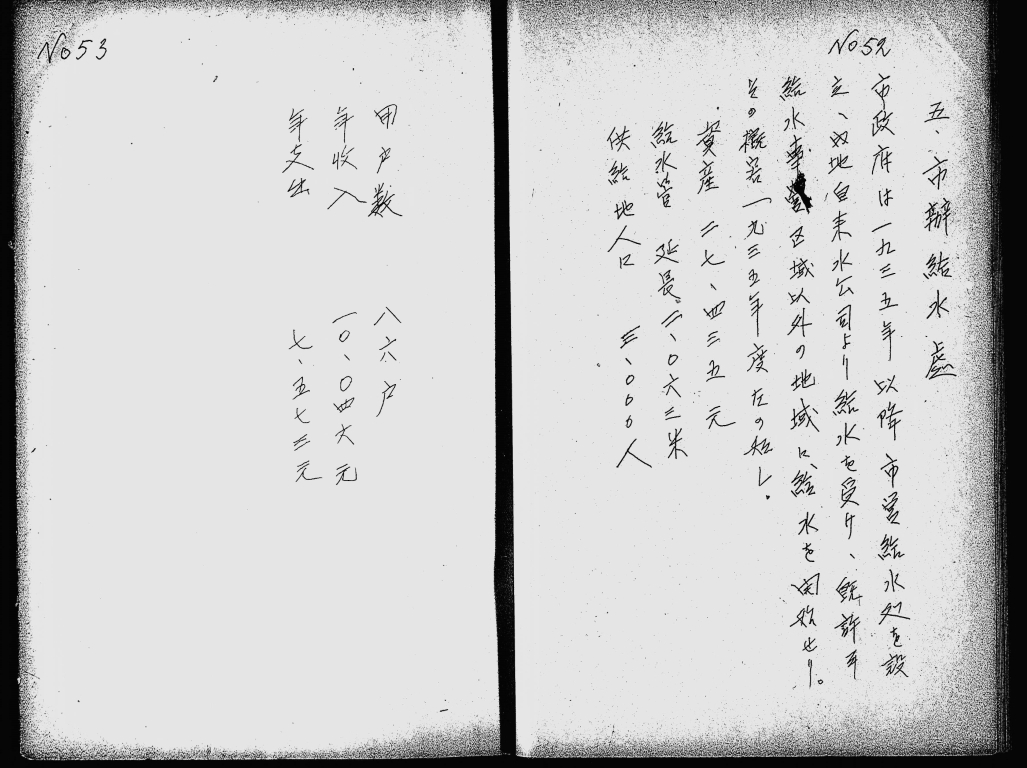 No 52
五、市辦給水處
市政府は一九三五年以降市営給水処を設
立、内地自来水公司より給水を受け、既許可
給水事業区域以外の地域に給水を開始せり。
その概容一九三五年度左の如し.
資産 二七、四三五元
給水管 延長 二、〇六三米
供給地人口 三、〇〇〇人
No 53
用户数 八六户
年收入 一〇、〇四六元
年支出 七、五七三元